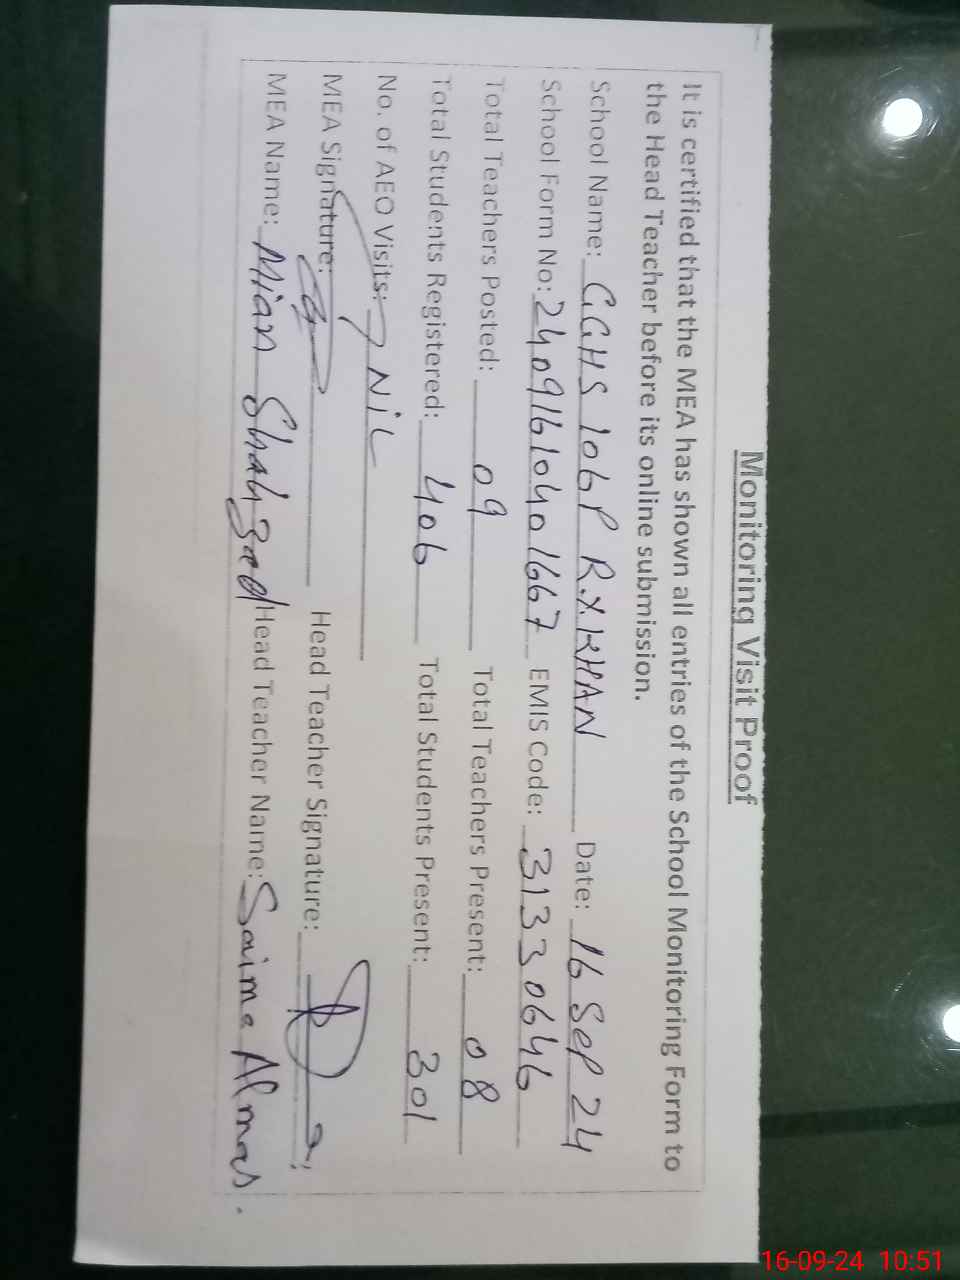 Monitoring Visit Proof
It is certified that the MEA has shown all entries of the School Monitoring Form to
the Head Teacher before its online submission.
School Name: GGHS 106P R.Y.KHAN Date: 16 Sep 24
School Form No: 24091610401667 EMIS Code: 31330646
Total Teachers Posted: 09 Total Teachers Present: 08
Total Students Registered: 406 Total Students Present: 301
No. of AEO Visits: NiL
MEA Signature: Head Teacher Signature:
MEA Name: Mian Shahzad Head Teacher Name: Saima Almas.
16-09-24 10:51